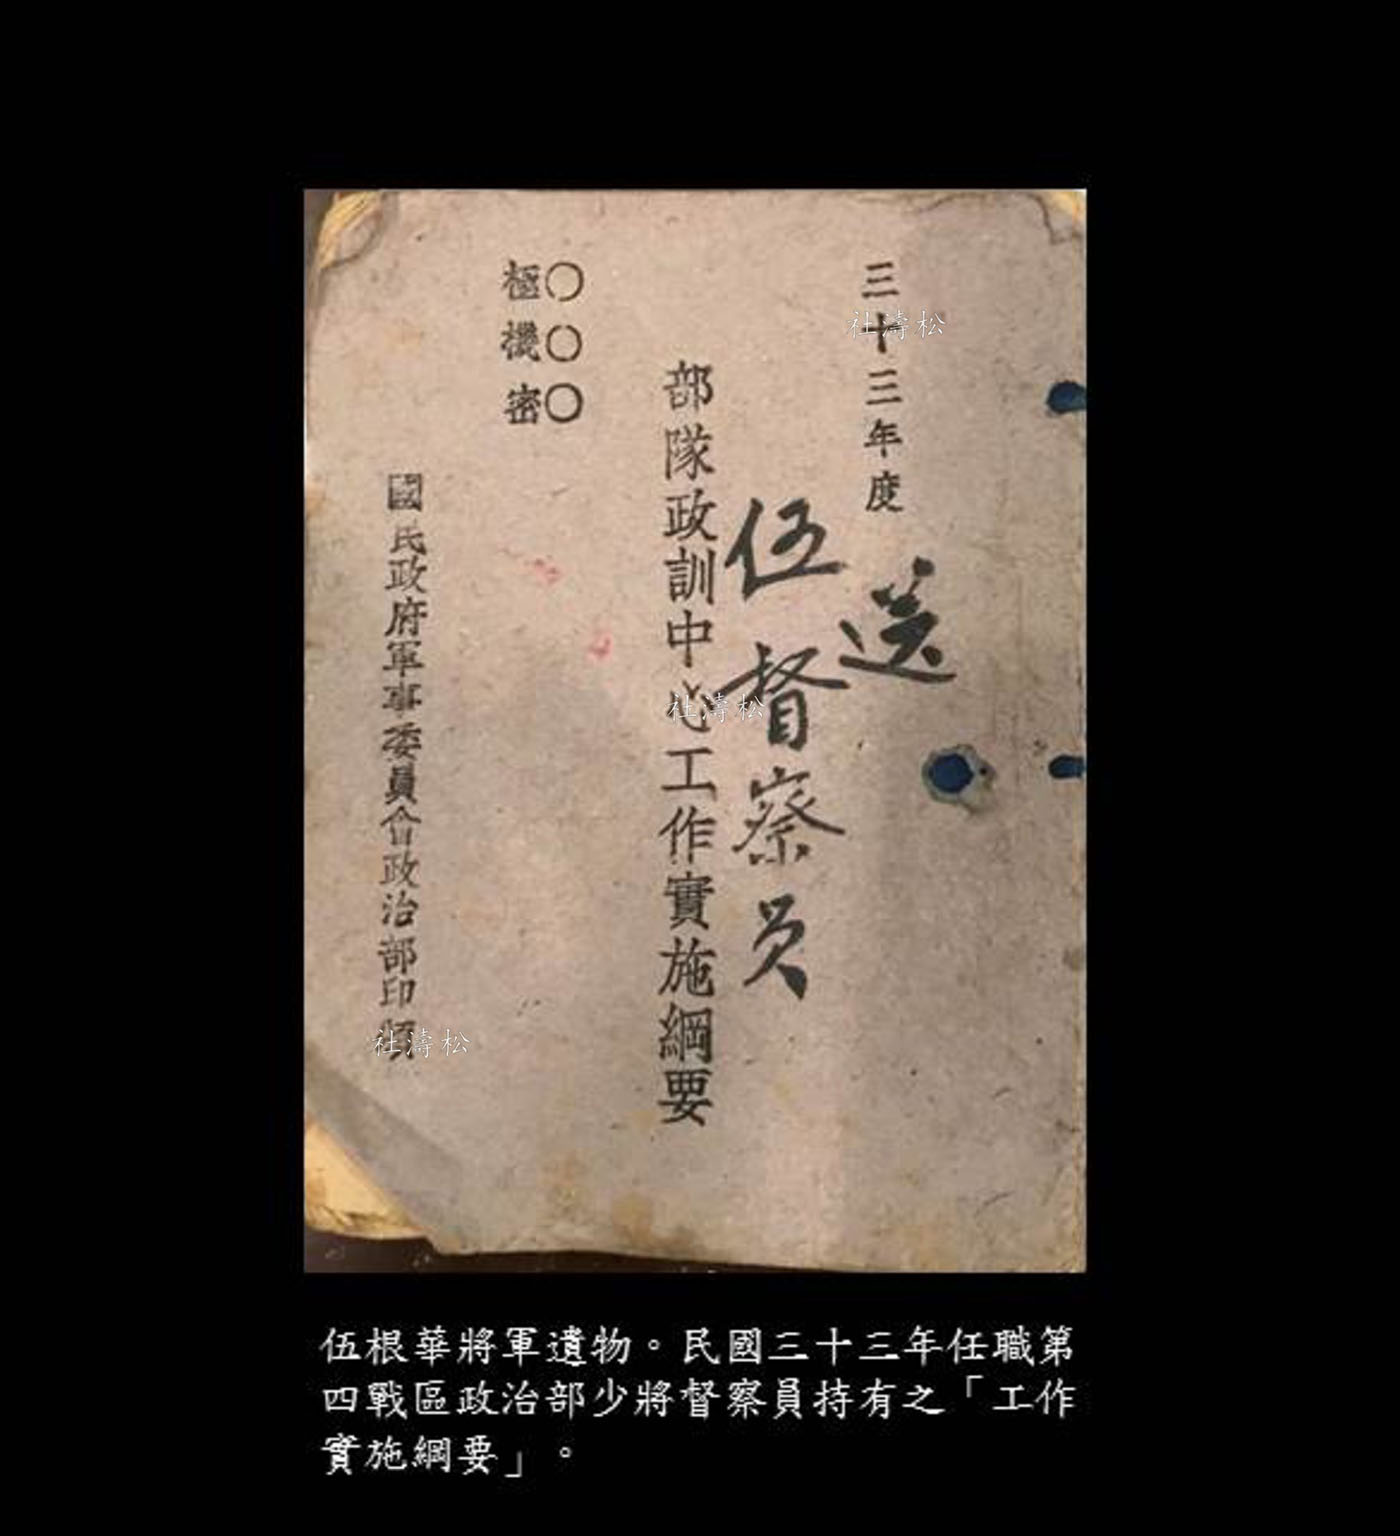 三十三年度
送
伍督察员
部隊政訓中心工作實施綱要
○○○
極機密
國民政府軍事委員會政治部印頒
松濤社
松濤社
松濤社
伍根華將軍遺物。民國三十三年任職第
四戰區政治部少將督察員持有之「工作
實施綱要」。